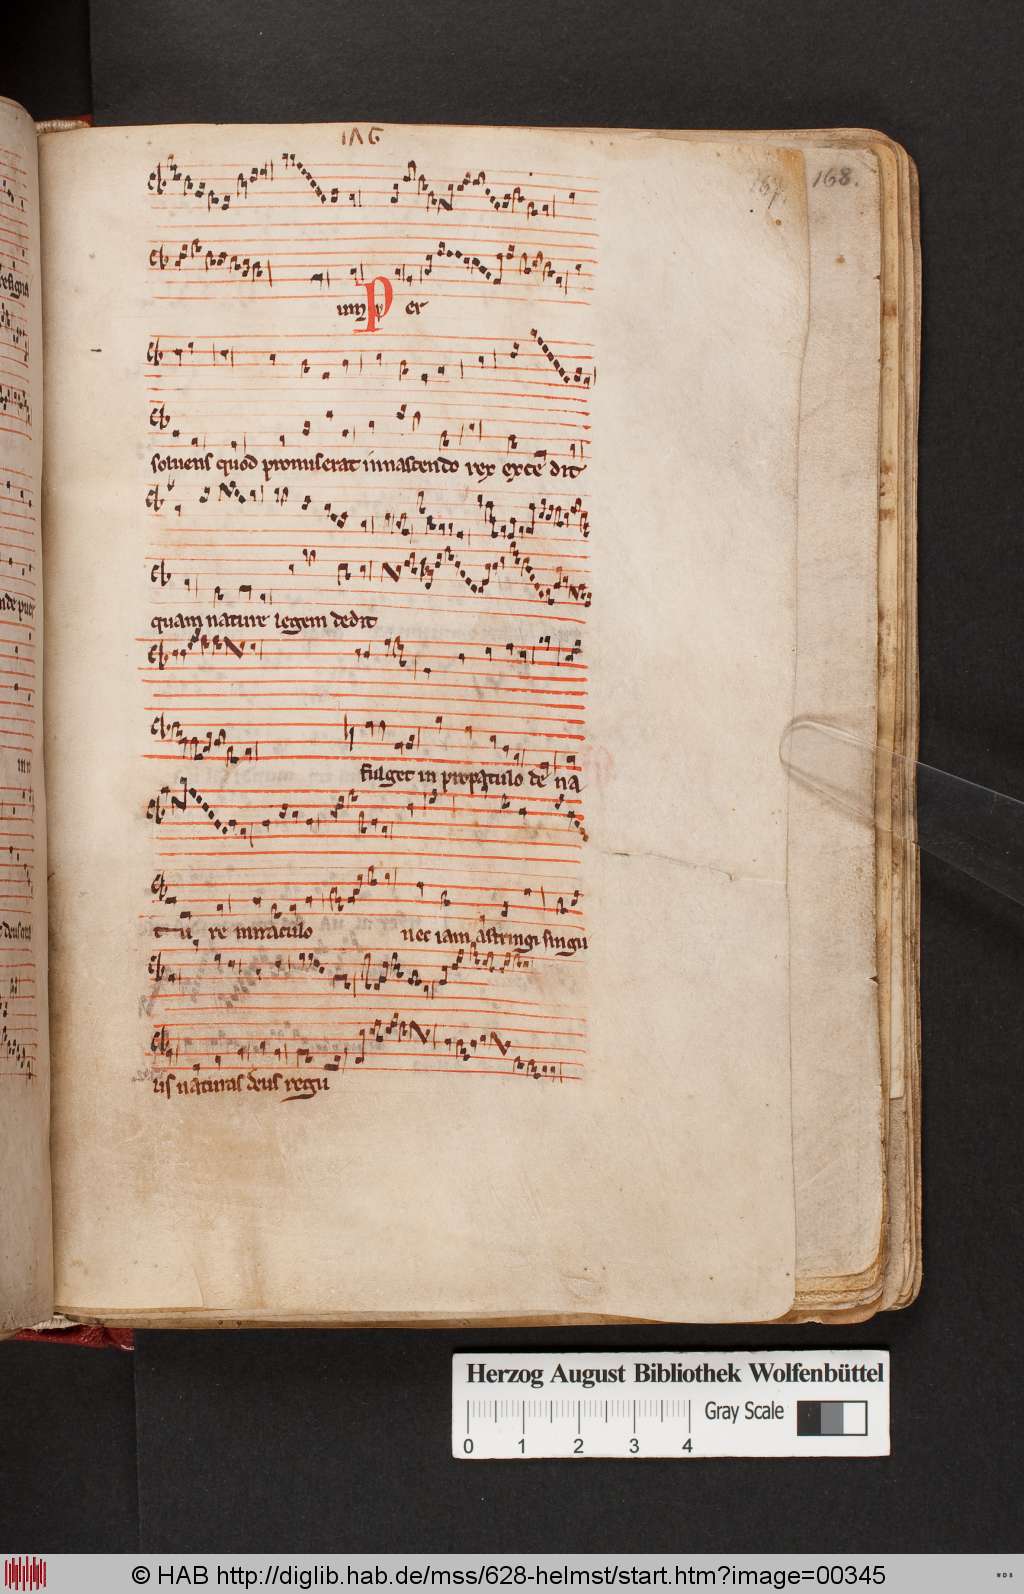 168.
um Per
soluens quod promiserat in nascendo rex excedit
quam nature legem dedit
fulget in propatulo de na
tu re miraculo nec iam astringi singu
lis naturas deus regu
Herzog August Bibliothek Wolfenbüttel
Gray Scale
0 1 2 3 4
© HAB http://diglib.hab.de/mss/628-helmst/start.htm?image=00345